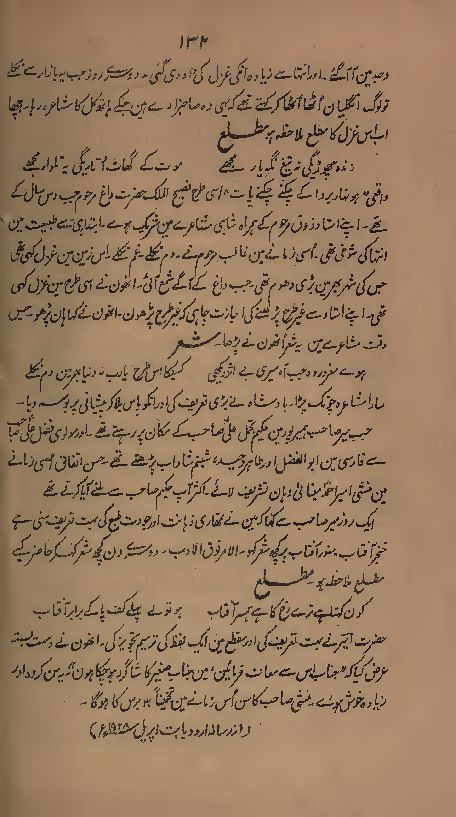 ۱۳۲
وجد مین آ گئے ۔ اور انتہا سے زیادہ انکی غزل کی داد دی گئی ۔ دوسرے روز جب یہ بازار سے نکلے
تو لوگ انگلیان اُٹھا اُٹھا کر کہتے تھے کہ یہی وہ صاحبزادے ہین جنکے ہاتھ کل کا مشاعرہ رہا ۔ اچھا
اب اس غزل کا مطلع ملاحظہ ہو مطلع
زندہ چھوڑیگی نہ تیغ نگہِ یار مجھے موت کے گھاٹ اُتاریگی یہ تلوار مجھے
واقعی "ہونہار بروا کے چکنے چکنے پات" اسی طرح فصیح الملک حضرت داغ مرحوم جب دس سال کے
تھے ۔ اپنے استاد ذوق مرحوم کے ہمراہ شاہی مشاعرے مین شریک ہوے ۔ ابتدا ہی سے طبیعت مین
انتہا کی شوخی تھی ۔ اُسی زمانے مین غالب مرحوم نے ۔ دم نکلے ۔ غم نکلے ۔ اس زمین مین غزل کہی تھی
جس کی شہر بھر مین بڑی دھوم تھی جب داغ کے آگے شمع آئی ۔ انھون نے اسی طرح مین غزل کہی
تھی ۔ اپنے استاد سے غیر طرح پڑھنے کی اجازت چاہی کہ غیر طرح پڑھون ۔ انھون نے کہا ہان پڑھو ۔ جس
وقت مشاعرے مین یہ شعر اُنھون نے پڑھا ۔ شعر
ہوے مغرور وہ جب آہ میری بے اثر دیکھی کسیکا اس طرح یارب نہ دنیا بھر مین دم نکلے
سارا مشاعرہ چونک پڑا ۔ بادشاہ نے بڑی تعریف کی اور انکو پاس بلا کر پیشانی پر بوسہ دیا ۔
جب میر صاحب میرپور مین حکیم تجمل علی صاحب کے مکان پر رہتے تھے ۔ اور مولوی فضل علی صاحب
سے فارسی مین ابوالفضل اور طاہر وحید، شبنم شاداب پڑھتے تھے ۔ حسن اتفاق اسی زمانے
مین منشی امیر احمد مینائی وہان تشریف لائے ۔ اکثر آپ حکیم صاحب سے ملنے آیا کرتے تھے
ایک روز میر صاحب سے کہا کہ مین نے تمھاری ذہانت اور جودت طبع کی بہت تعریف سنی ہے
خنجر آفتاب ۔ منور آفتاب پر کچھ شعر کہو ۔ الامر فوق الادب ۔ دوسرے دن کچھ شعر کہہ کر حاضر کیے
مطلع ملاحظہ ہو ۔ مطلع
کون کہتا ہے ترے رخ کا ہے ہمسر آفتاب ہو تو لے پہلے کف پا کے برابر آفتاب
حضرت امیر نے بہت تعریف کی اور مقطع مین ایک لفظ کی ترمیم تجویز کی ۔ انھون نے دست بستہ
عرض کیا کہ "جناب اس سے معاف فرمائین، مین جناب صغیر کا شاگرد ہو چکا ہون" یہ سن کر وہ اور
زیادہ خوش ہوے ۔ منشی صاحب کا سن اُس زمانے مین تخمیناً برس کا ہوگا ۔
(از رسالہ اردو بابت اپریل ۱۹۲۸ء)